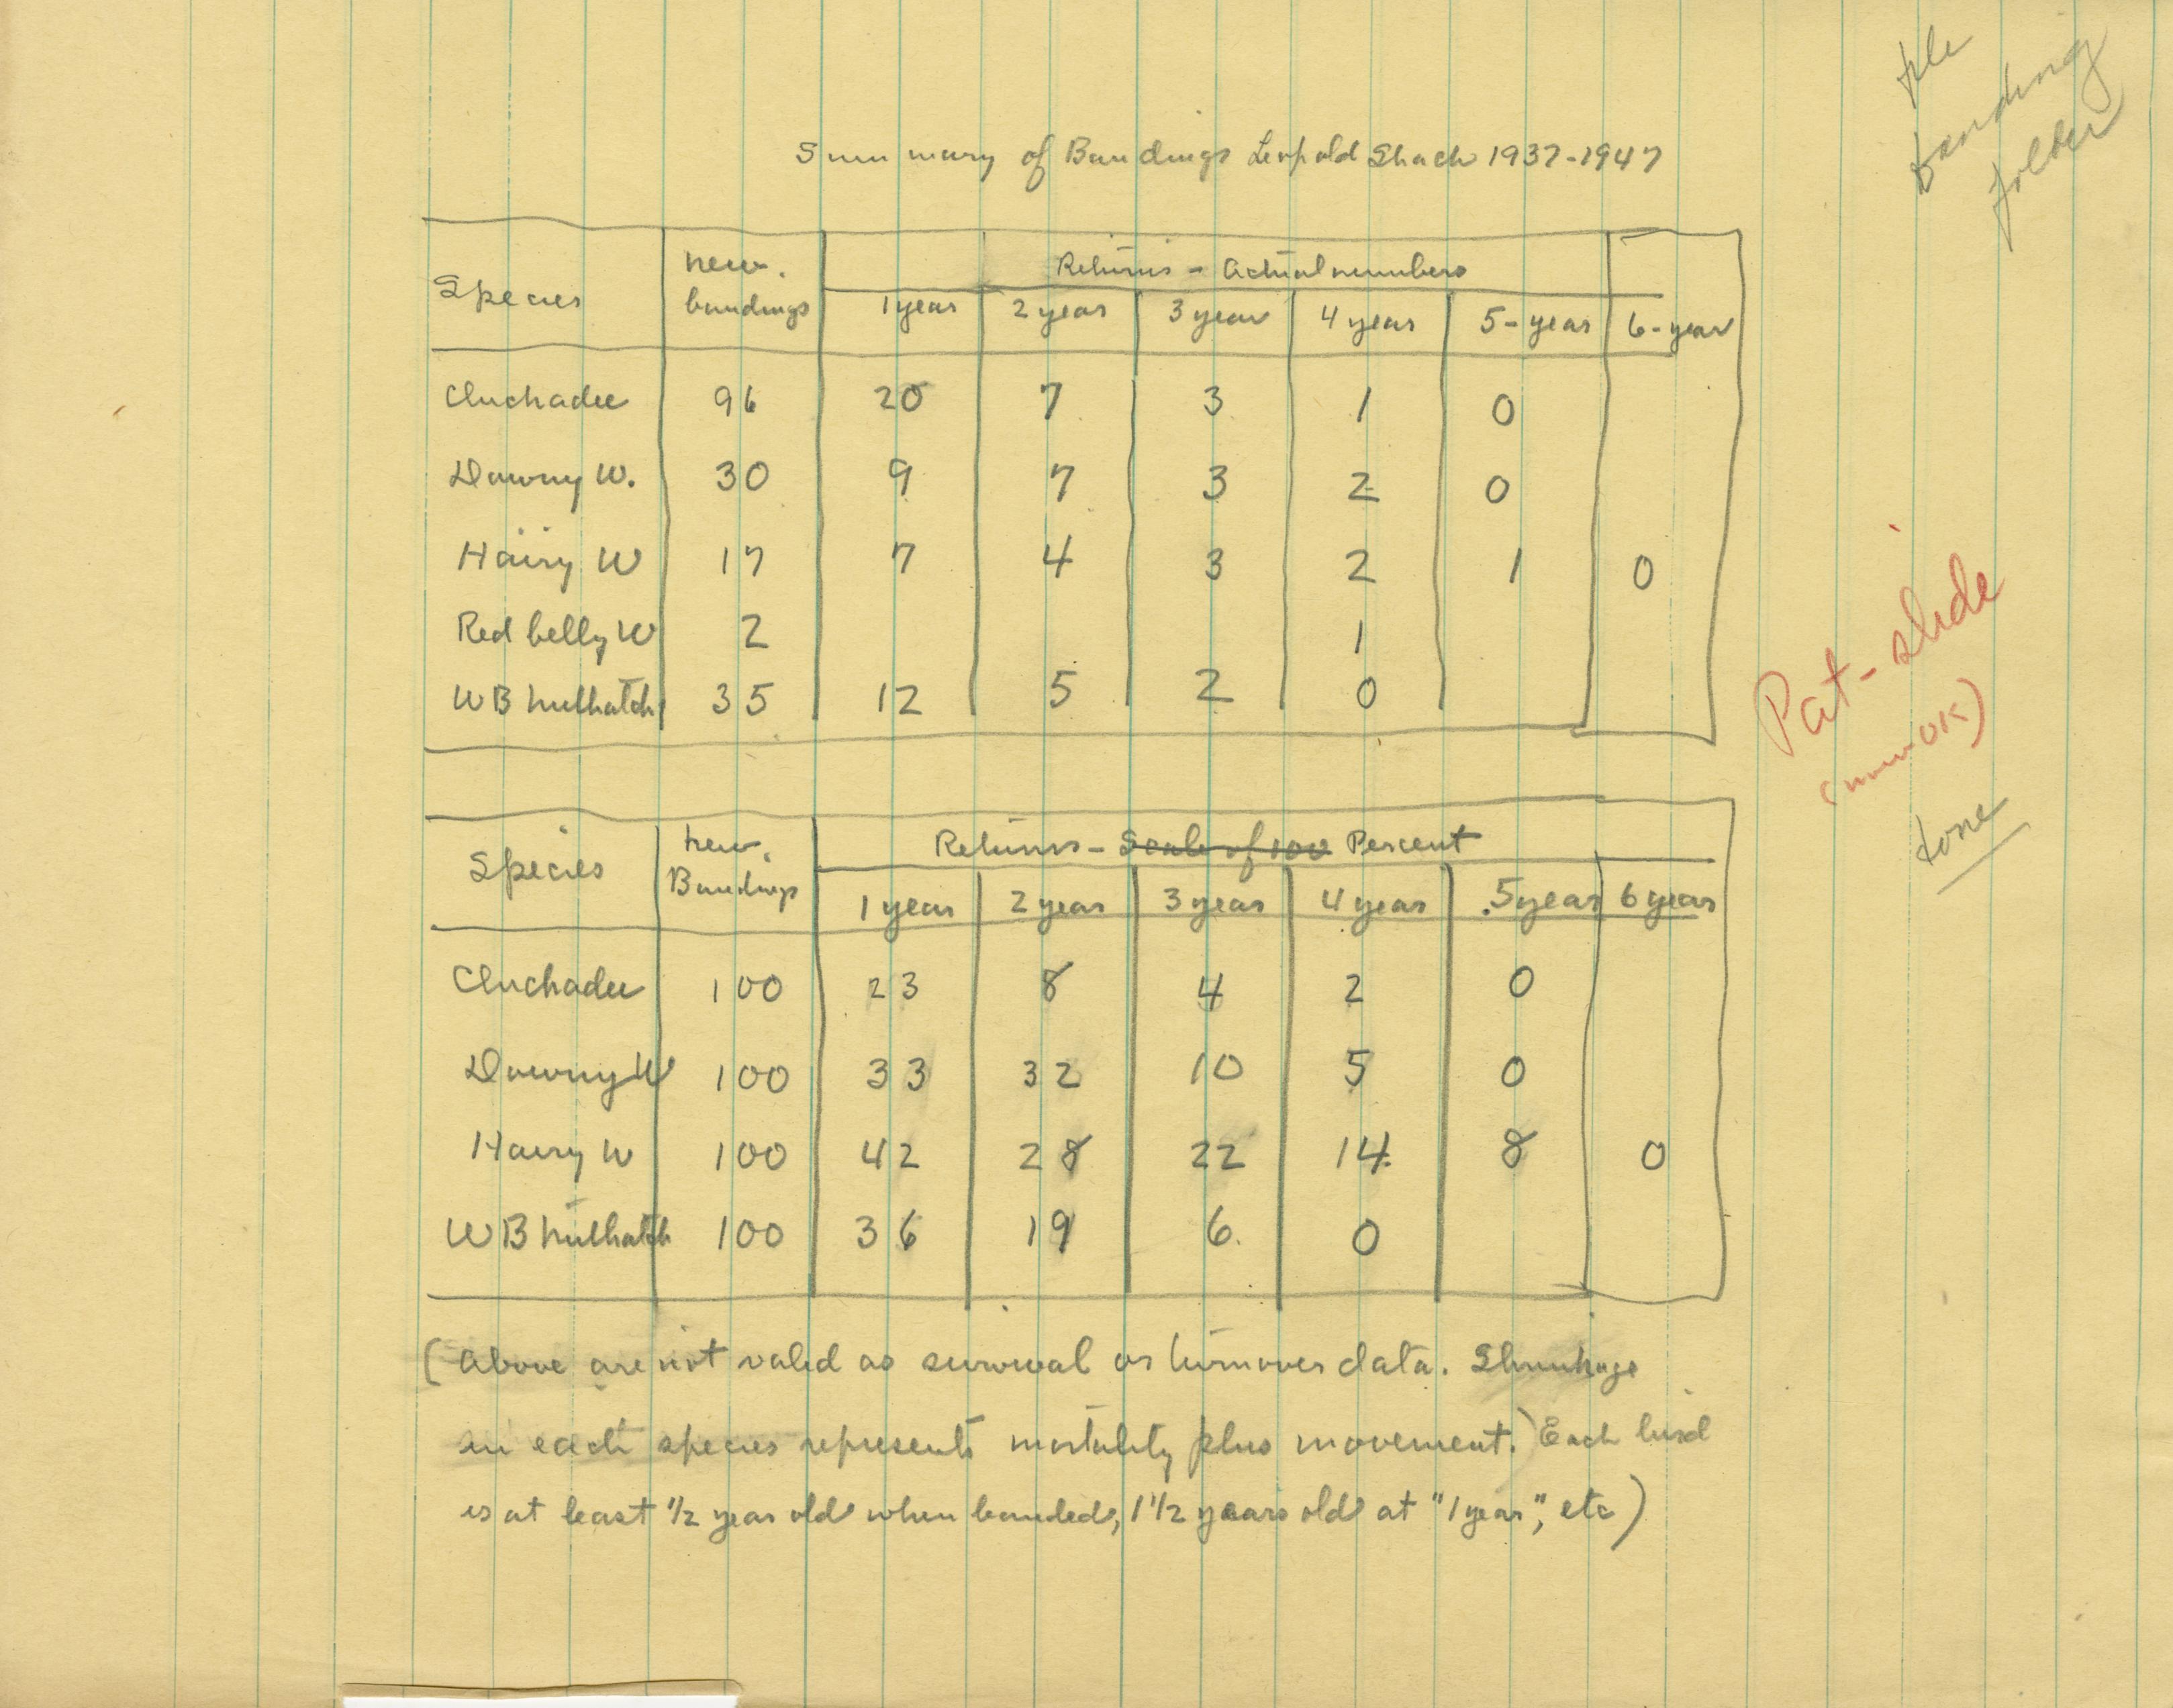 file
banding
folder
Summary of Bandings Leopold Shack 1937-1947
Species new. bandings Returns - Actual numbers
1 year 2 year 3 year 4 year 5-year 6-year
Chickadee 96 20 7 3 1 0
Downy W. 30 9 7 3 2 0
Hairy W 17 7 4 3 2 1 0
Red belly W 2 1
WB nuthatch 35 12 5 2 0
Pat-slide
OK)
done
Species new. Bandings Returns - Scale of 100 Percent
1 year 2 year 3 year 4 year 5 year 6 year
Chickadee 100 23 8 4 2 0
Downy W 100 33 32 10 5 0
Hairy W 100 42 28 22 14 8 0
WB nuthatch 100 36 19 6 0
(Above are not valid as survival or turnover data. Shrinkage
in each species represents mortality plus movement.) Each bird
is at least 1/2 year old when banded, 1 1/2 years old at "1 year", etc)